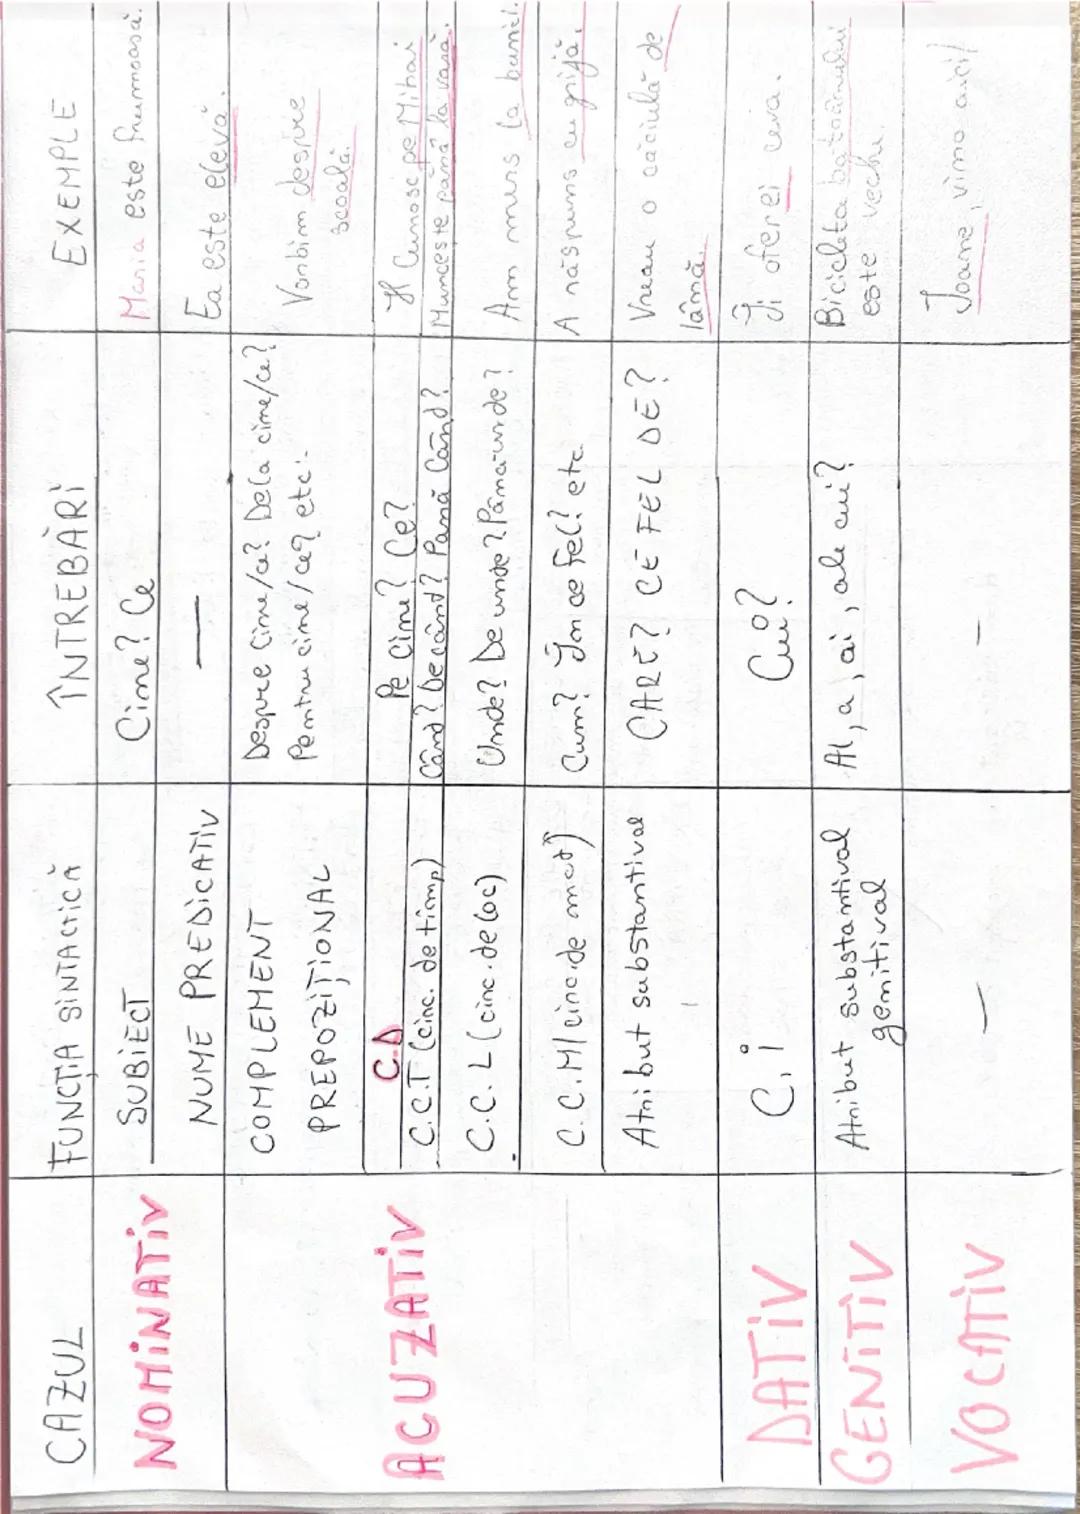 CAZUL
FUNCȚIA SINTACTICĂ
ÎNTREBĂRI
EXEMPLE
NOMINATIV
SUBIECT
Cine? Ce
Maria este frumoasă.
NUME PREDICATIV
—
Ea este elevă.
ACUZATIV
COMPLEMENT
PREPOZIȚIONAL
Despre cine/ce? Dela cine/ce?
Pentru cine/ce? etc.
Vorbim despre
școală.
C.D
Pe cine? Ce?
Îl Cunosc pe Mihai
C.C.T (circ. de timp)
Când? De când? Până Când?
Muncește până la vară.
C.C.L (circ. de loc)
Unde? De unde? Până unde?
Am mers la bunici.
C.C.M (circ de mod)
Cum? În ce fel? etc.
A răspuns cu grijă.
Atribut substantival
CARE? CE FEL DE?
Vreau o căciulă de
lână.
DATIV
C.i
Cui?
Îi oferei ceva.
GENITIV
Atribut substantival
genitival
Al, a, ai, ale cui?
Bicicleta bătrânului
este veche.
VOCATIV
—
—
Ioane, vino aici!